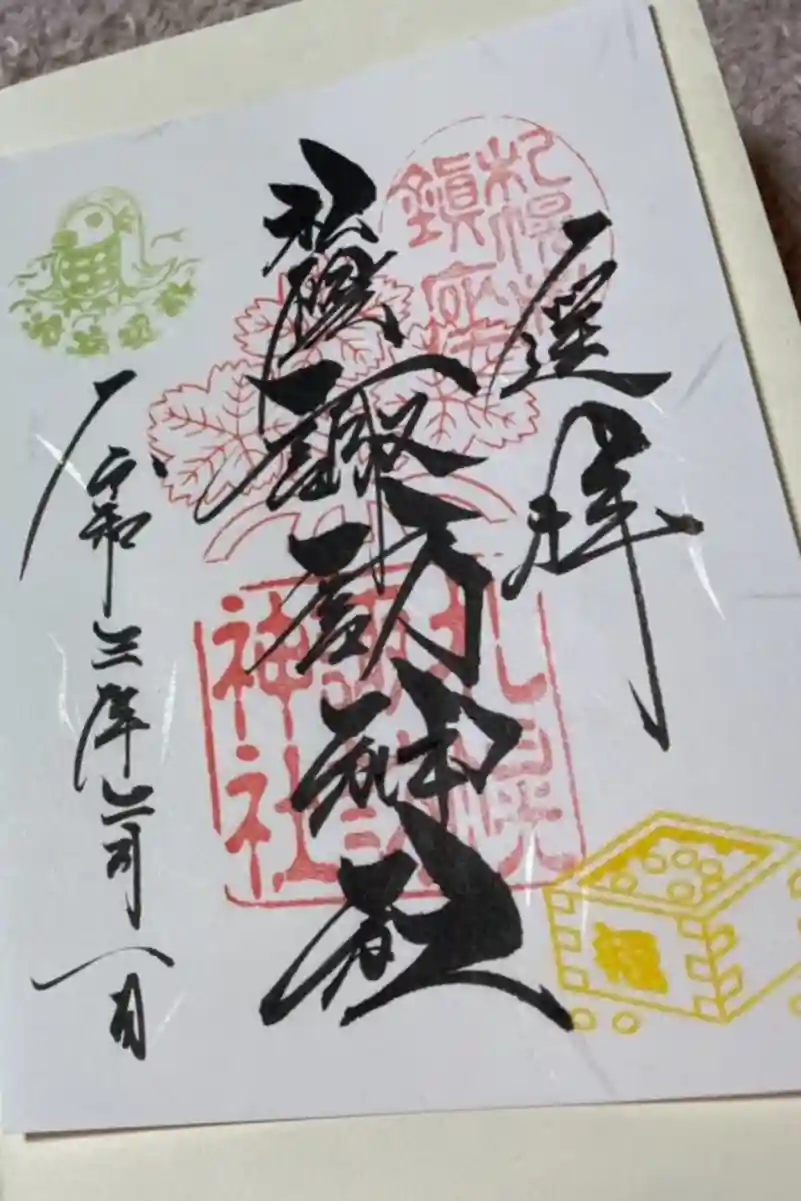 札幌村
鎮座
遥拝
札幌諏訪神社
札幌
諏訪
神社
令和三年二月一日
福